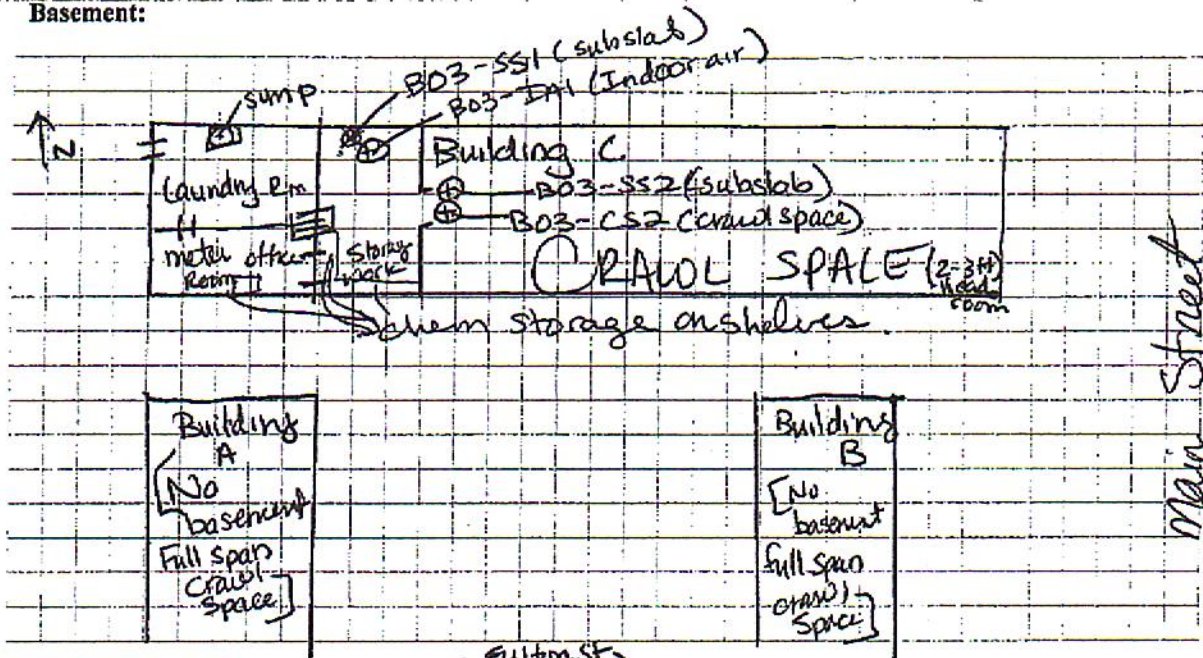 Basement:
B03-SS1 (subslab)
B03-IA1 (Indoor air)
sump
N
Building C
Laundry Rm
B03-SS2 (subslab)
B03-CS2 (crawl space)
meter office
Room
Storage
work
CRAWL SPACE (2-3 ft
head-
room
chem storage on shelves.
Main Street
Building
A
[No
basement
Full span
crawl
space]
Building
B
[No
basement
full span
crawl
space]
Fulton St.